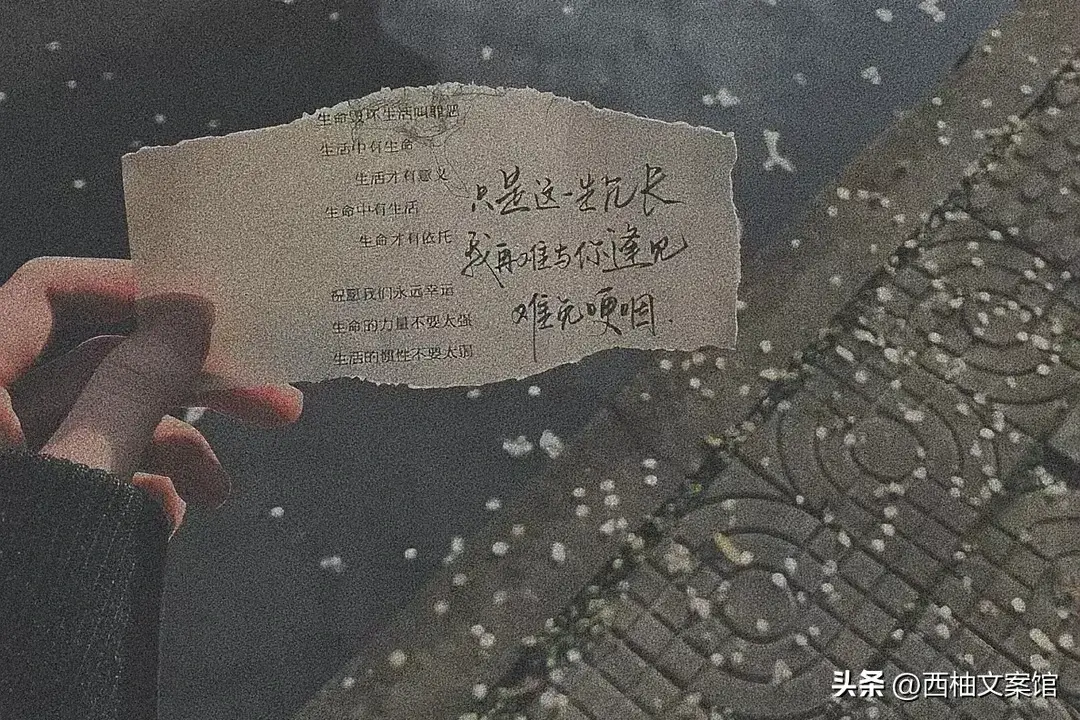 生命毁坏生活叫罪恶
生活中有生命
生活才有意义
生命中有生活
生命才有依托
祝愿我们永远幸运
生命的力量不要太强
生活的惯性不要太弱
只是这一生冗长
我再难与你逢见
难免哽咽.
头条 @西柚文案馆